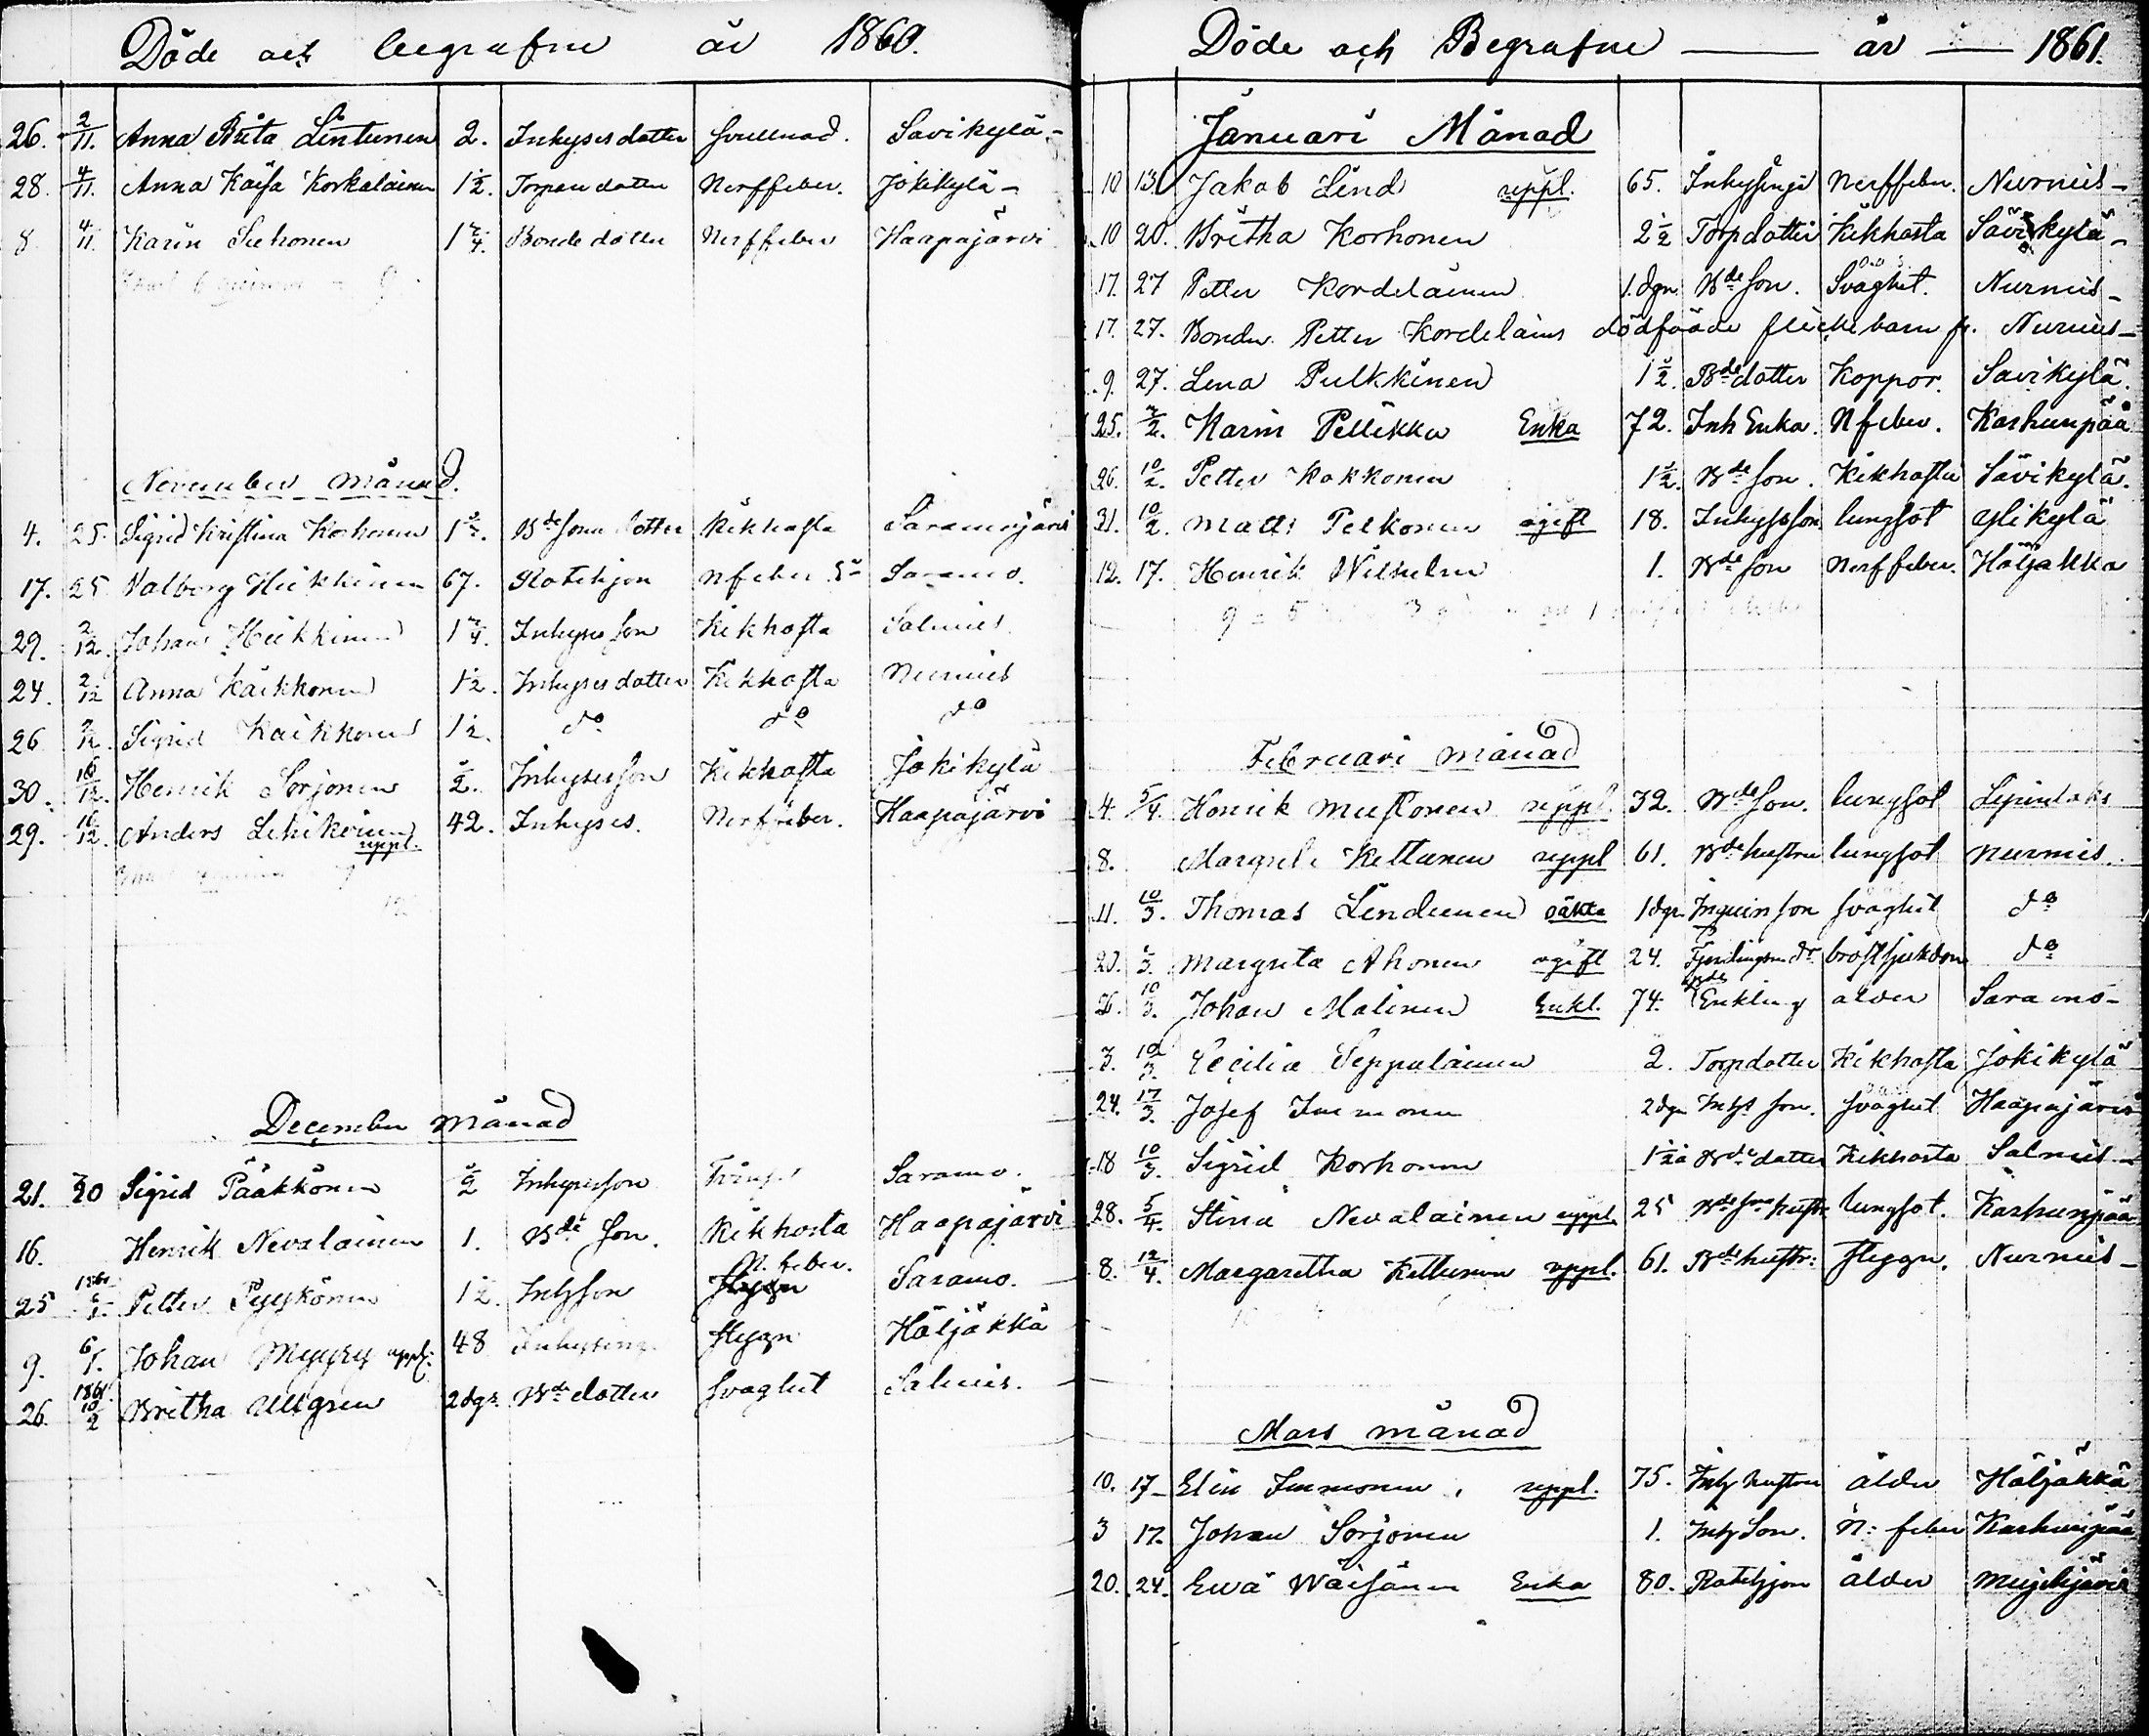 Döde och begrafne år 1860.
26. 2/11. Anna Brita Lintunen 2. Inhyses dotter svullnad. Savikylä -
28. 4/11. Anna Kaisa Korkalainen 1 1/2. Torpare dotter Nerffeber. Jokikylä -
8 4/11. Karin Siihonen 1 2/4. Bonde dotter Nerffeber Haapajärvi
November månad.
4. 25. Sigrid Kristina Korhonen 1 1/2. Bde sons dotter Kikhosta Saramojärvi
17. 25 Valborg Heikkinen 67. Rotehjon Nfeber Saramo.
29. 2/12. Johan Heikkinen 1 2/4. Inhyses son Kikhosta Salmis
24. 2/12 Anna Kaikkonen 1 1/2. Inhyses dotter Kikhosta Nurmis
26 2/12. Sigrid Kaikkonen 1 1/2. do do do
30. 16/12. Henrik Sorjonen 1/2. Inhyses son Kikhosta Jokikylä
29. 16/12. Anders Lehikoinen uppl. 42. Inhyses. Nerffeber. Haapajärvi
December månad
21. Sigrid Pääkkönen 1/2 Inhyses son Saramo.
16. Henrik Nevalainen 1. Bde son. Kikhosta Haapajärvi
25 1861 Petter Pyykönen 1 1/2. Inhson N. feber. Saramo.
9. 6/1. Johan Myyry uppl. 48 Inhysing flygn Höljäkkä
26. 1861 10/2 Britha Ullgren 2 dgr. Bde dotter svaghet Salmis.
Döde och Begrafne — år — 1861.
Januari Månad
10 13. Jakob Lind uppl. 65. Inhysing Nerffeber. Nurmis -
10 20. Britha Korhonen 2 1/2 Torpdotter Kikhosta Savikylä -
17. 27 Petter Kordelainen 1. dgn. Bde son. Svaghet. Nurmis -
17. 27. Bonden Petter Kordelains dödfödde flicke barn fr. Nurmis -
9. 27. Lena Pulkkinen 1 1/2. Bde dotter Koppor. Savikylä.
25. 2/2. Karin Pellikka Enka 72. Inh Enka. Nfeber. Karhunpää
26. 10/2. Petter Kokkonen 1 1/2. Bde son. Kikhosta Savikylä.
31. 10/2. Matts Pelkonen ogift 18. Inhyses son lungsot Ylikylä
12. 17. Henrik Wilhelm 1. Bde son Nerffeber. Höljäkkä
Februari månad
4. 5/4. Henrik Mustonen uppl. 32. Bde son. lungsot Lipinlaks
8. Margreta Kettunen uppl 61. Bde hustru lungsot Nurmis.
11. 10/3. Thomas Lindunen oäkta 1 dgr son svaghet do
20. 3. Margreta Ahonen ogift 24. bröstsjukdom do
10/3. Johan Malinen Enkl. 74. Enkling ålder Saramo -
3. 10/3. Cecilia Seppälainen 2. Torpdotter Kikhosta Jokikylä
24. 17/3. Josef Immonen 2 dgr Inhs son. svaghet Haapajärvi
18 10/3. Sigrid Korhonen 1 1/2 Bde dotter Kikhosta Salmis -
28. 5/4. Stina Nevalainen uppl. 25 Bde sons hustr. lungsot. Karhunpää
8. 12/4. Margaretha Kettunen uppl. 61. Bde hustr: flygn. Nurmis -
Mars månad
10. 17 - Elin Immonen, uppl. 75. Inh hustru ålder Höljäkkä
3 17. Johan Sorjonen 1. Inh Son. N: feber Karhunpää
20. 24. Ewa Wäisänen Enka 80. Rotehjon ålder Mujejärvi